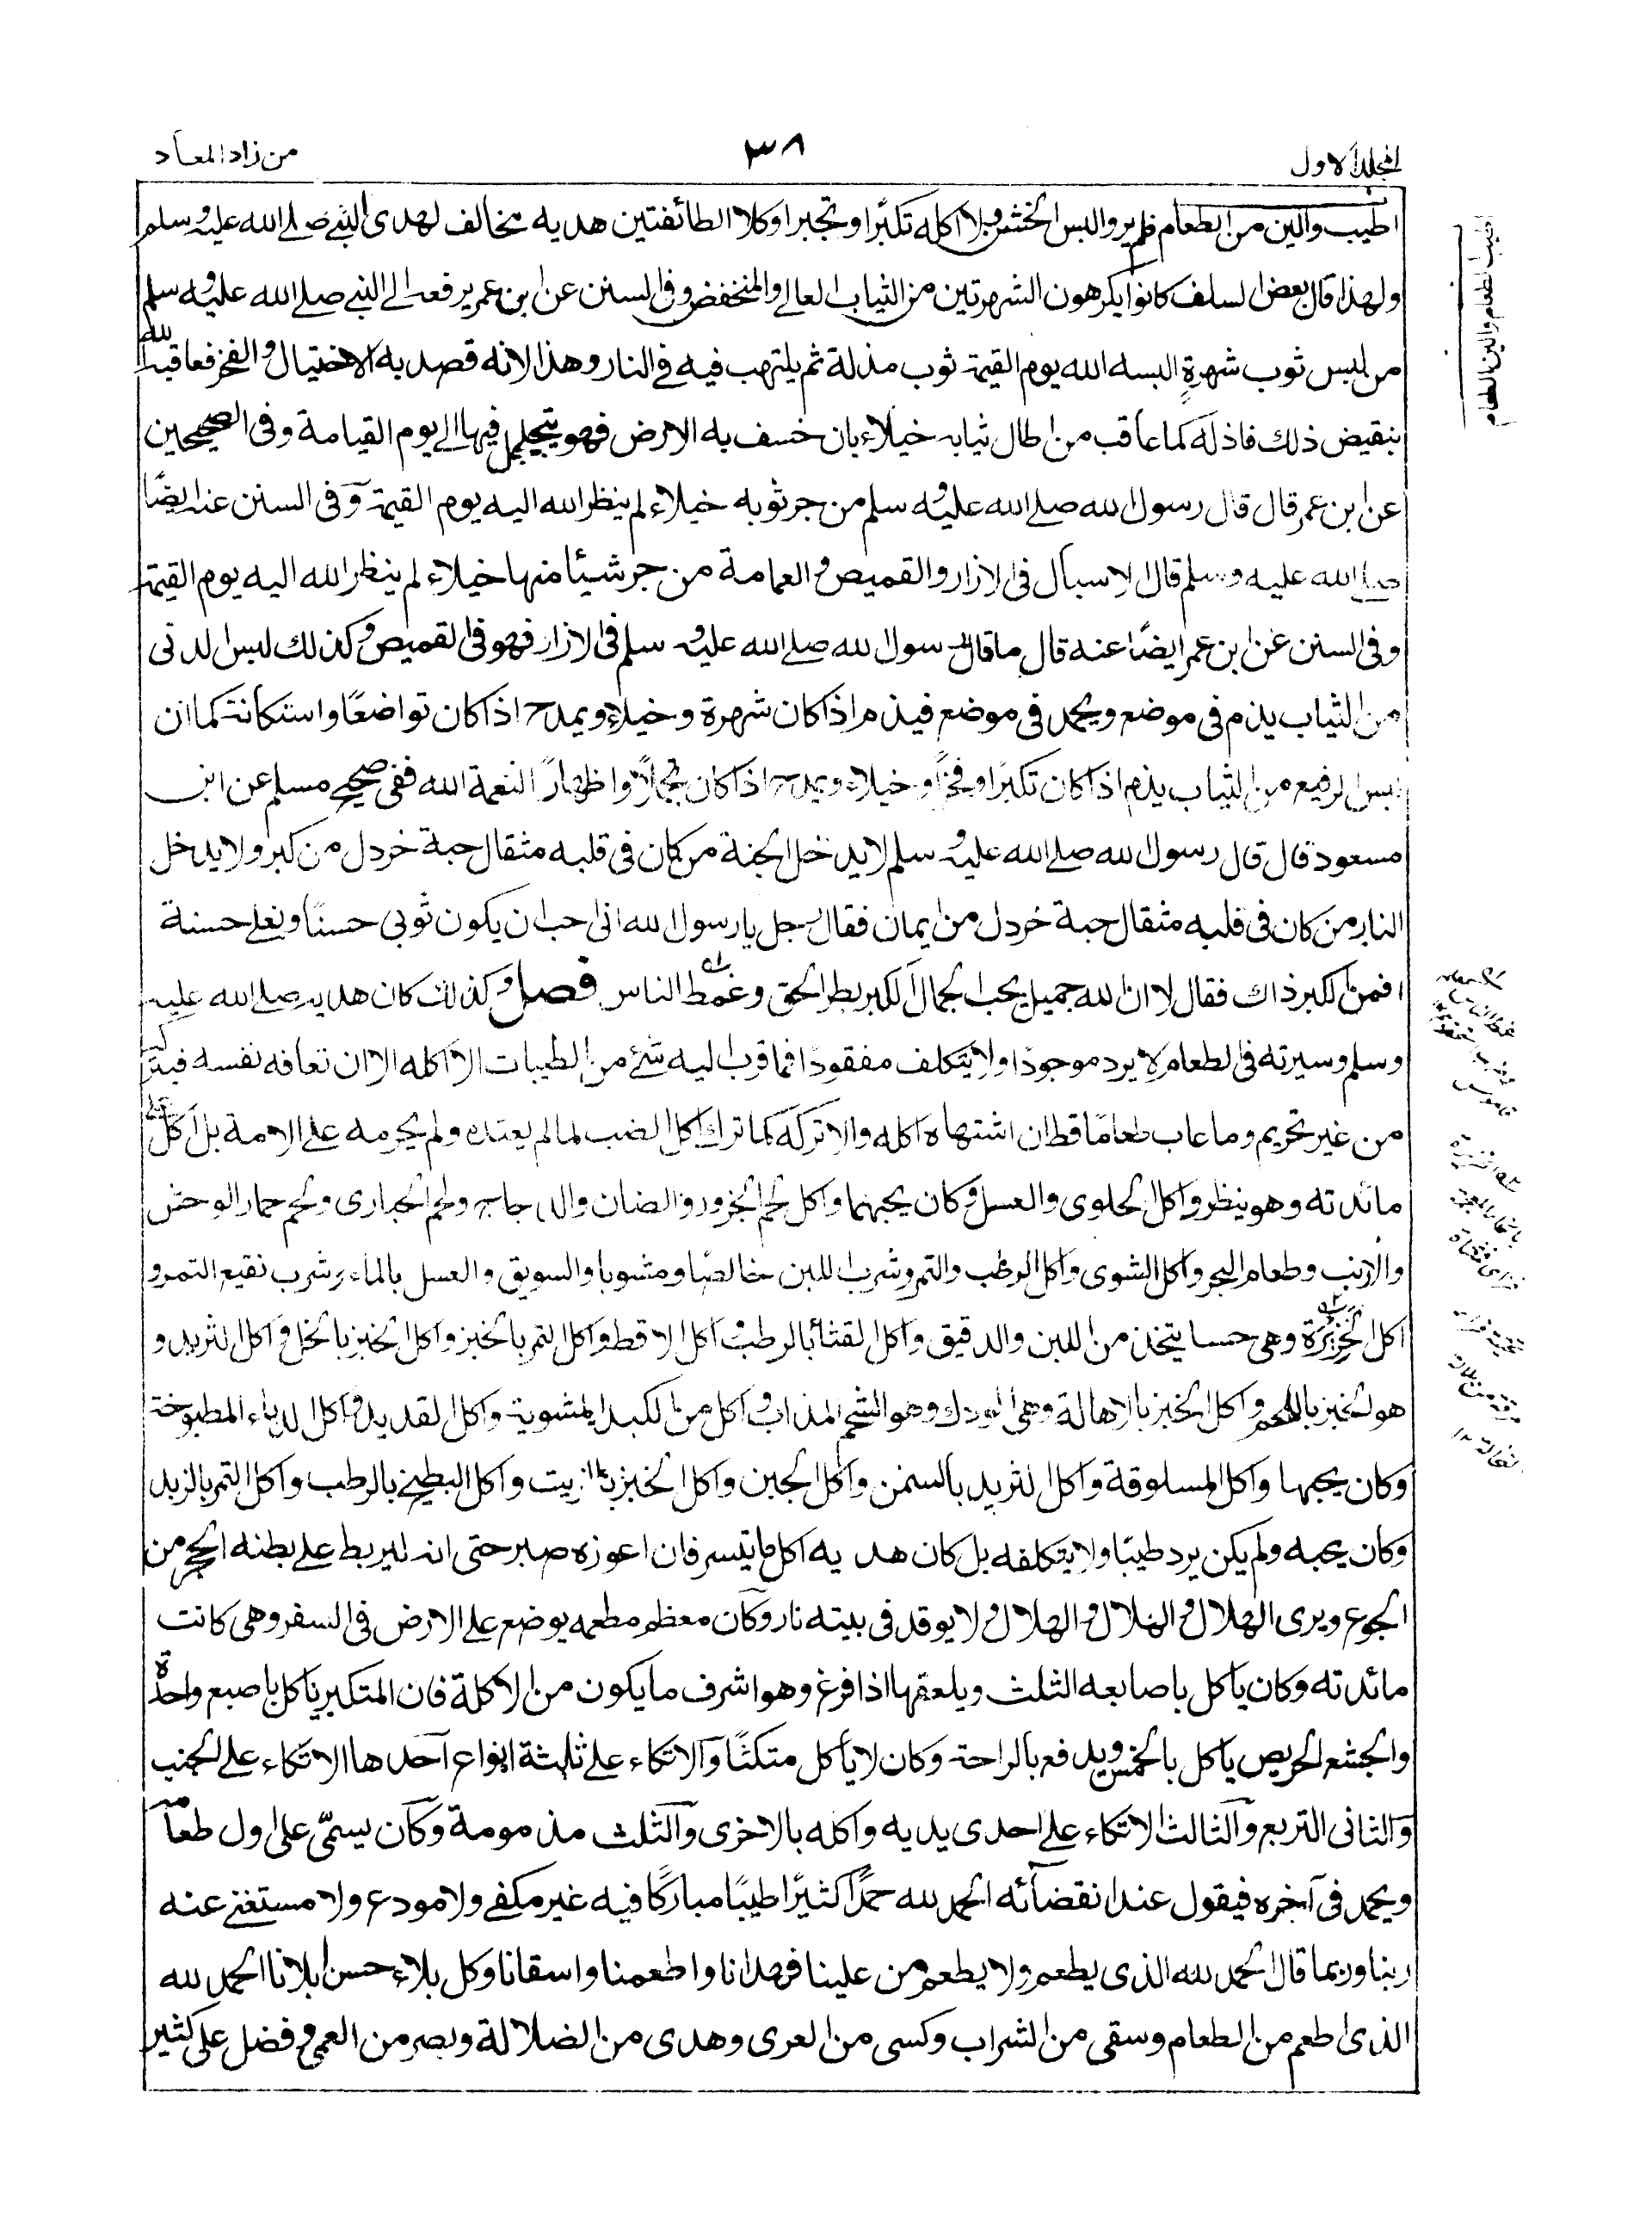 المجلد الاول
٣٨
من زاد المعاد
اطيب والين من الطعام فلم يروا لبس الخشن ولا اكله تكبرًا وتجبرا وكلا الطائفتين هديه مخالف لهدى النبي صلے الله عليه وسلم
ولهذا قال بعض السلف كانوا يكرهون الشهرتين من الثياب العالى والمنخفض وفى السنن عن ابن عمر يرفعه الى النبي صلے الله عليه وسلم
من لبس ثوب شهرةٍ البسه الله يوم القيمة ثوب مذلة ثم يلتهب فيه فى النار وهذا لانه قصد به الاختيال والفخر فعاقبه الله
بنقيض ذلك فاذله كما عاقب من اطال ثيابه خيلاء بان خسف به الارض فهو يتجلجل فيها الى يوم القيامة وفى الصحيحين
عن ابن عمر قال قال رسول الله صلے الله عليه وسلم من جر ثوبه خيلاء لم ينظر الله اليه يوم القيمة وفى السنن عنه ايضًا
صلے الله عليه وسلم قال الاسبال فى الازار والقميص والعمامة من جر شيئا منها خيلاء لم ينظر الله اليه يوم القيمة
وفى السنن عن ابن عمر ايضًا عنه قال ما قال رسول الله صلے الله عليه وسلم فى الازار فهو فى القميص وكذلك لبس الدنى
من الثياب يذم فى موضع ويحمد فى موضع فيذم اذا كان شهرة وخيلاء ويمدح اذا كان تواضعًا واستكانة كما ان
لبس الرفيع من الثياب يذم اذا كان تكبرًا وفخرًا وخيلاء ويمدح اذا كان تجملًا واظهارًا لنعمة الله ففى صحيح مسلم عن ابن
مسعود قال قال رسول الله صلے الله عليه وسلم لا يدخل الجنة من كان فى قلبه مثقال حبة خردل من كبر ولا يدخل
النار من كان فى قلبه مثقال حبة خردل من ايمان فقال رجل يا رسول الله انى احب ان يكون ثوبى حسنًا ونعلى حسنة
افمن الكبر ذاك فقال لا ان الله جميل يحب الجمال الكبر بطر الحق وغمط الناس فصل وكذلك كان هديه صلے الله عليه
وسلم وسيرته فى الطعام لا يرد موجودًا ولا يتكلف مفقودًا فما قرب اليه شئ من الطيبات الا اكله الا ان تعافه نفسه فيتركه
من غير تحريم وما عاب طعامًا قط ان اشتهاه اكله والا تركه كما ترك اكل الضب لما لم يعتده ولم يحرمه على الامة بل اكل على
مائدته وهو ينظر واكل الحلوى والعسل وكان يحبهما واكل لحم الجزور والضان والدجاج ولحم الحبارى ولحم حمار الوحش
والارنب وطعام البحر واكل الشوى واكل الرطب والتمر وشرب اللبن خالصًا ومشوبا والسويق والعسل بالماء وشرب نقيع التمر و
اكل الخزيرة وهى حسا يتخذ من اللبن والدقيق واكل القثا بالرطب واكل الاقط واكل التمر بالخبز واكل الخبز بالخل واكل الثريد و
هو الخبز باللحم واكل الخبز بالاهالة وهى الودك وهو الشحم المذاب واكل من الكبد المشوية واكل القديد واكل الدباء المطبوخة
وكان يحبها واكل المسلوقة واكل الثريد بالسمن واكل الجبن واكل الخبز بالزيت واكل البطيخ بالرطب واكل التمر بالزبد
وكان يحبه ولم يكن يرد طيبًا ولا يتكلفه بل كان هديه اكل ما تيسر فان اعوزه صبر حتى انه ليربط على بطنه الحجر من
الجوع ويرى الهلال والهلال والهلال ولا يوقد فى بيته نار وكان معظم مطعمه يوضع على الارض فى السفر وهى كانت
مائدته وكان ياكل باصابعه الثلث ويلعقها اذا فرغ وهو اشرف ما يكون من الاكلة فان المتكبر ياكل باصبع واحدة
والجشع الحريص ياكل بالخمس ويدفع بالراحة وكان لا ياكل متكئًا والاتكاء على ثلثة انواع احدها الاتكاء على الجنب
والثانى التربع والثالث الاتكاء على احدى يديه واكله بالاخرى والثلث مذمومة وكان يسمّى على اول طعامه
ويحمد فى آخره فيقول عند انقضائه الحمد لله حمدًا كثيرًا طيبًا مباركًا فيه غير مكفى ولا مودع ولا مستغنى عنه
ربنا وربما قال الحمد لله الذى يطعم ولا يطعم من علينا فهدانا واطعمنا واسقانا وكل بلاء حسن ابلانا الحمد لله
الذى اطعم من الطعام وسقى من الشراب وكسى من العرى وهدى من الضلالة وبصر من العمى وفضل على كثير
اطيب الطعام والين الطعام